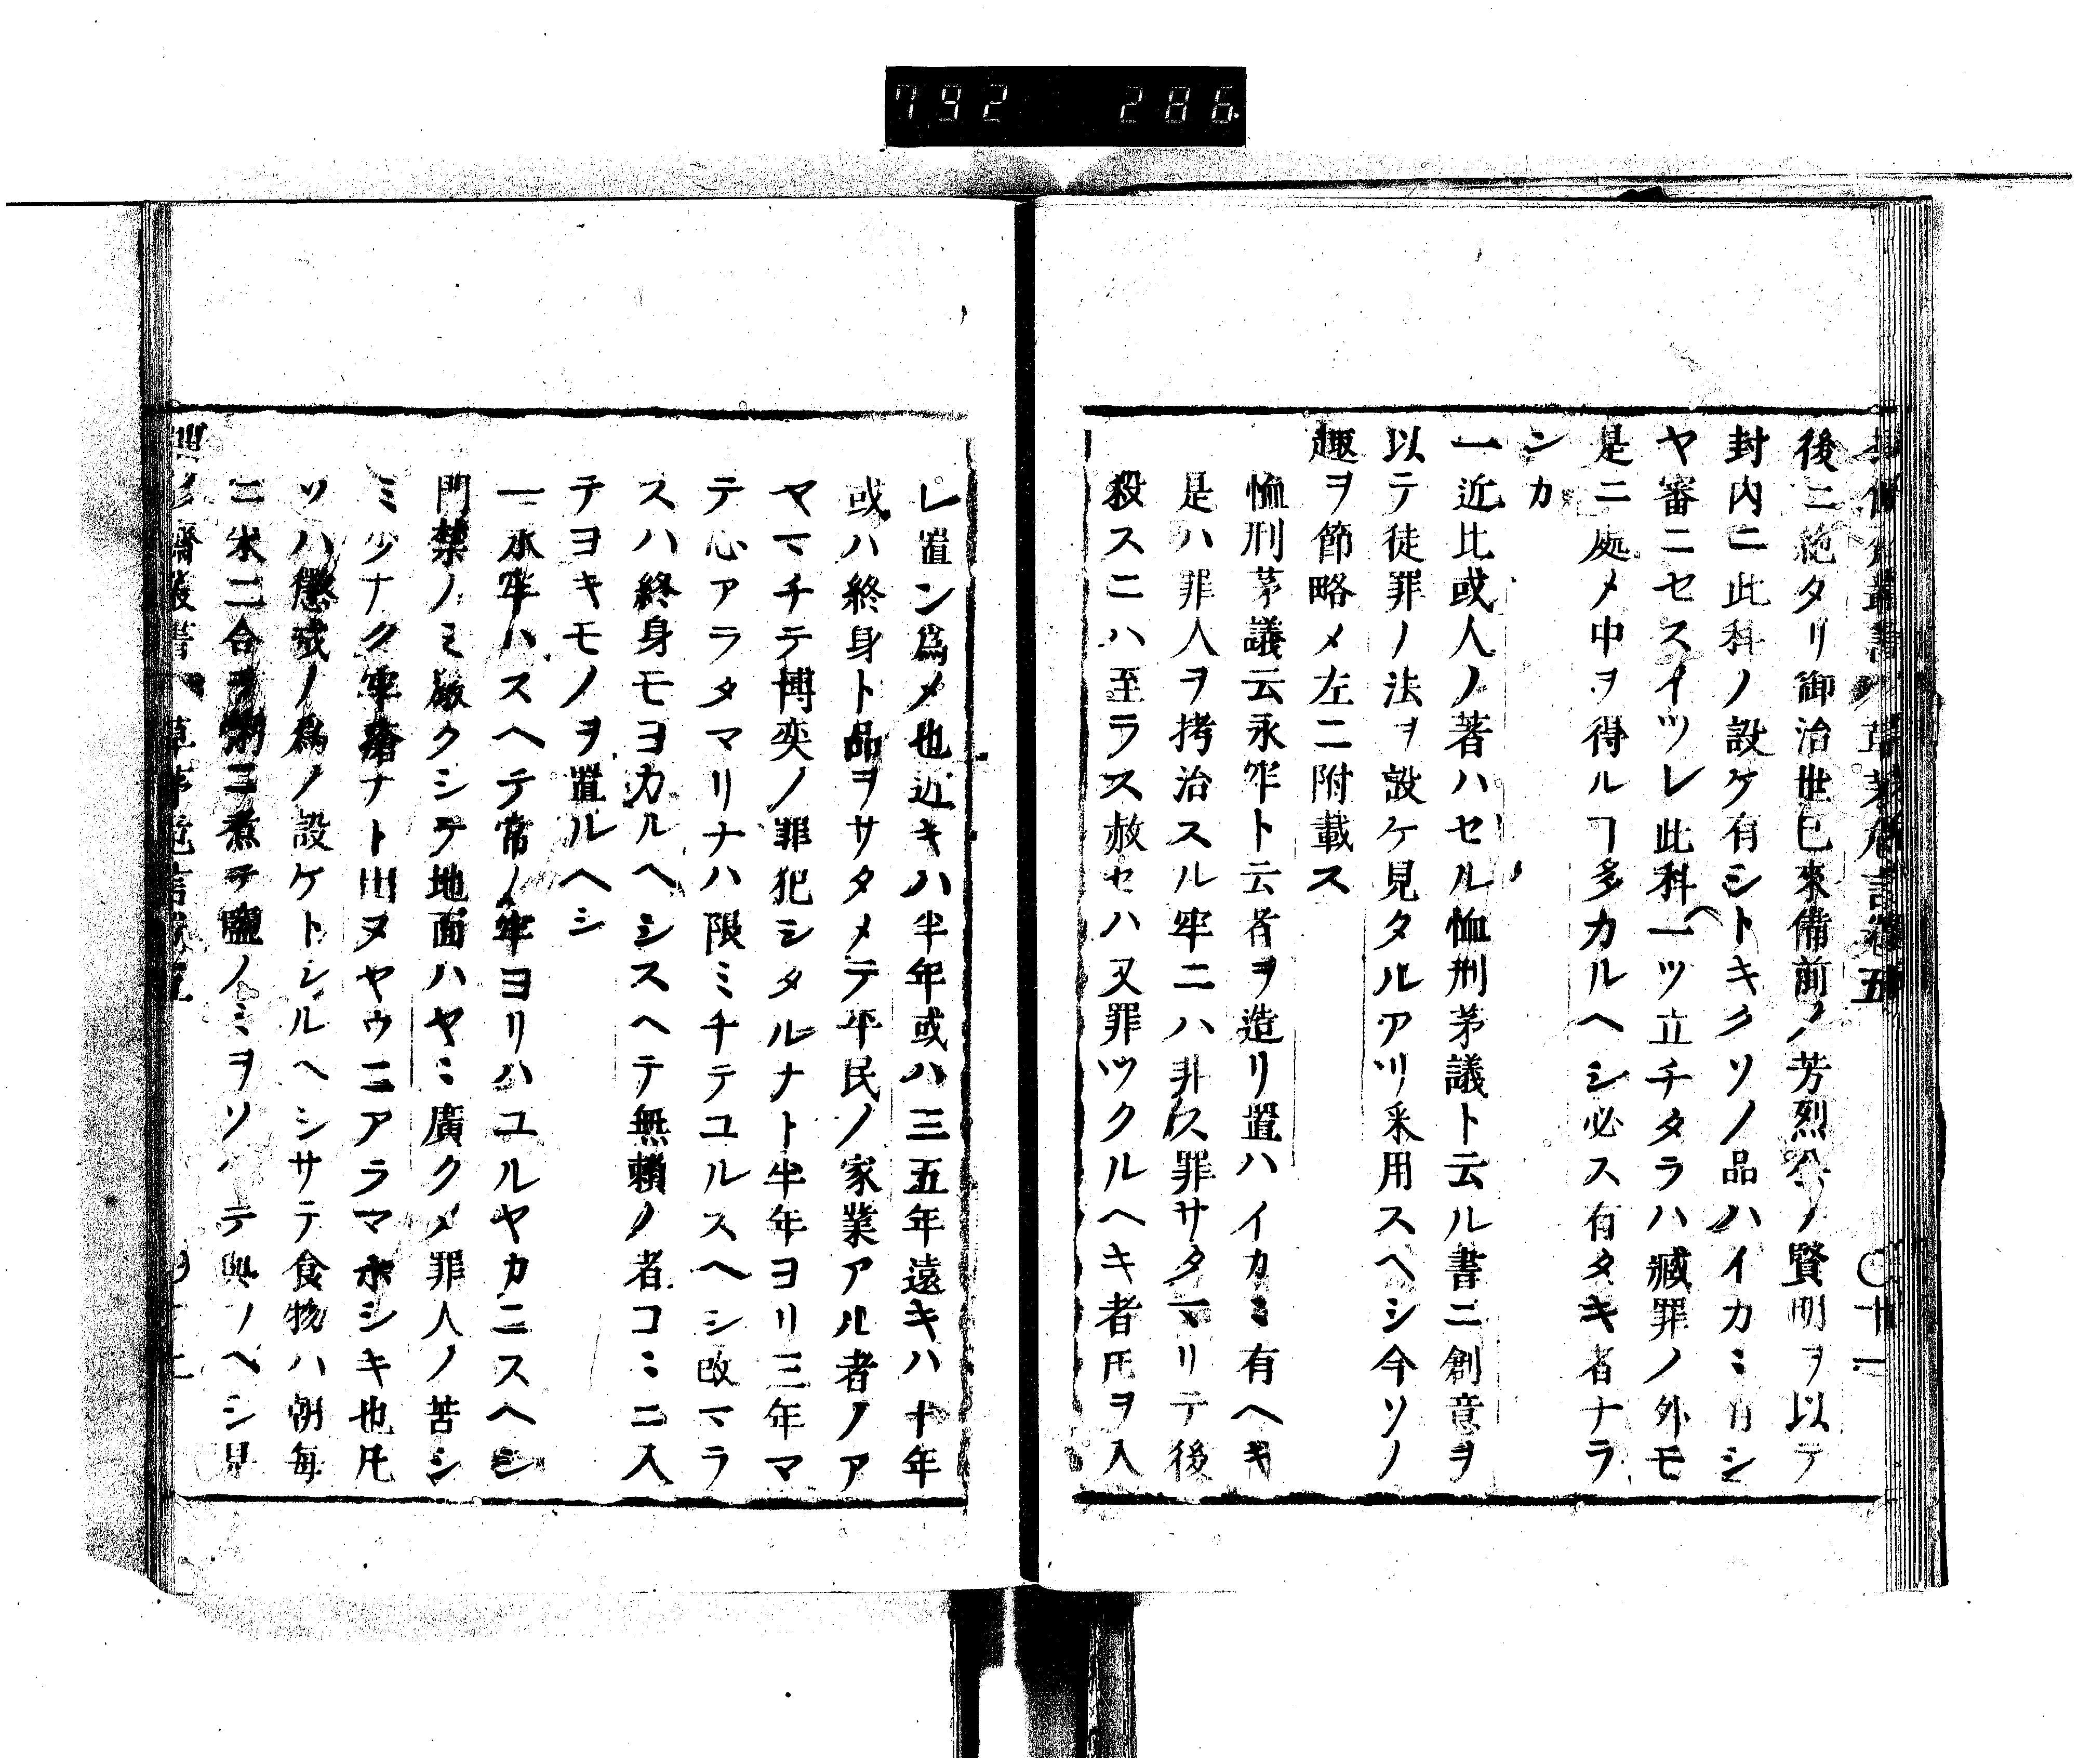 792 286
後ニ絶タリ御治世已來備前ノ芳烈公ノ賢明ヲ以テ
封内ニ此科ノ設ケ有シトキクソノ品ハイカミ有シ
ヤ審ニセスイツレ此科一ツ立チタラハ臧罪ノ外モ
是ニ処メ中ヲ得ルヿ多カルヘシ必ス有タキ者ナラ
ンカ
一近比或人ノ著ハセル恤刑茅議ト云ル書ニ創意ヲ
以テ徒罪ノ法ヲ設ケ見タルアリ采用スヘシ今ソノ
趣ヲ節略メ左ニ附載ス
恤刑茅議云永牢ト云者ヲ造リ置ハイカミ有ヘキ
是ハ罪人ヲ拷治スル牢ニハ非ス罪サタマリテ後
殺スニハ至ラス赦セハ又罪ツクルヘキ者𪜈ヲ入
レ置ン爲メ也近キハ半年或ハ三五年遠キハ十年
或ハ終身ト品ヲサタメテ平民ノ家業アル者ノア
ヤマチテ博奕ノ罪犯シタルナト半年ヨリ三年マ
テ心アラタマリナハ限ミチテユルスヘシ改マラ
スハ終身モヨカルヘシスヘテ無頼ノ者コミニ入
テヨキモノヲ置ルヘシ
一永牢ハスヘテ常ノ牢ヨリハユルヤカニスヘシ
門禁ノミ嚴クシテ地面ハヤミ廣クメ罪人ノ苦シ
ミ少ナク牢瘡ナト出ヌヤウニアラマホシキ也凡
ソハ懲戒ノ爲ノ設ケトシルヘシサテ食物ハ朝毎
ニ米二合ヲ粥ニ煮テ鹽ノミヲソヘテ與フヘシ是